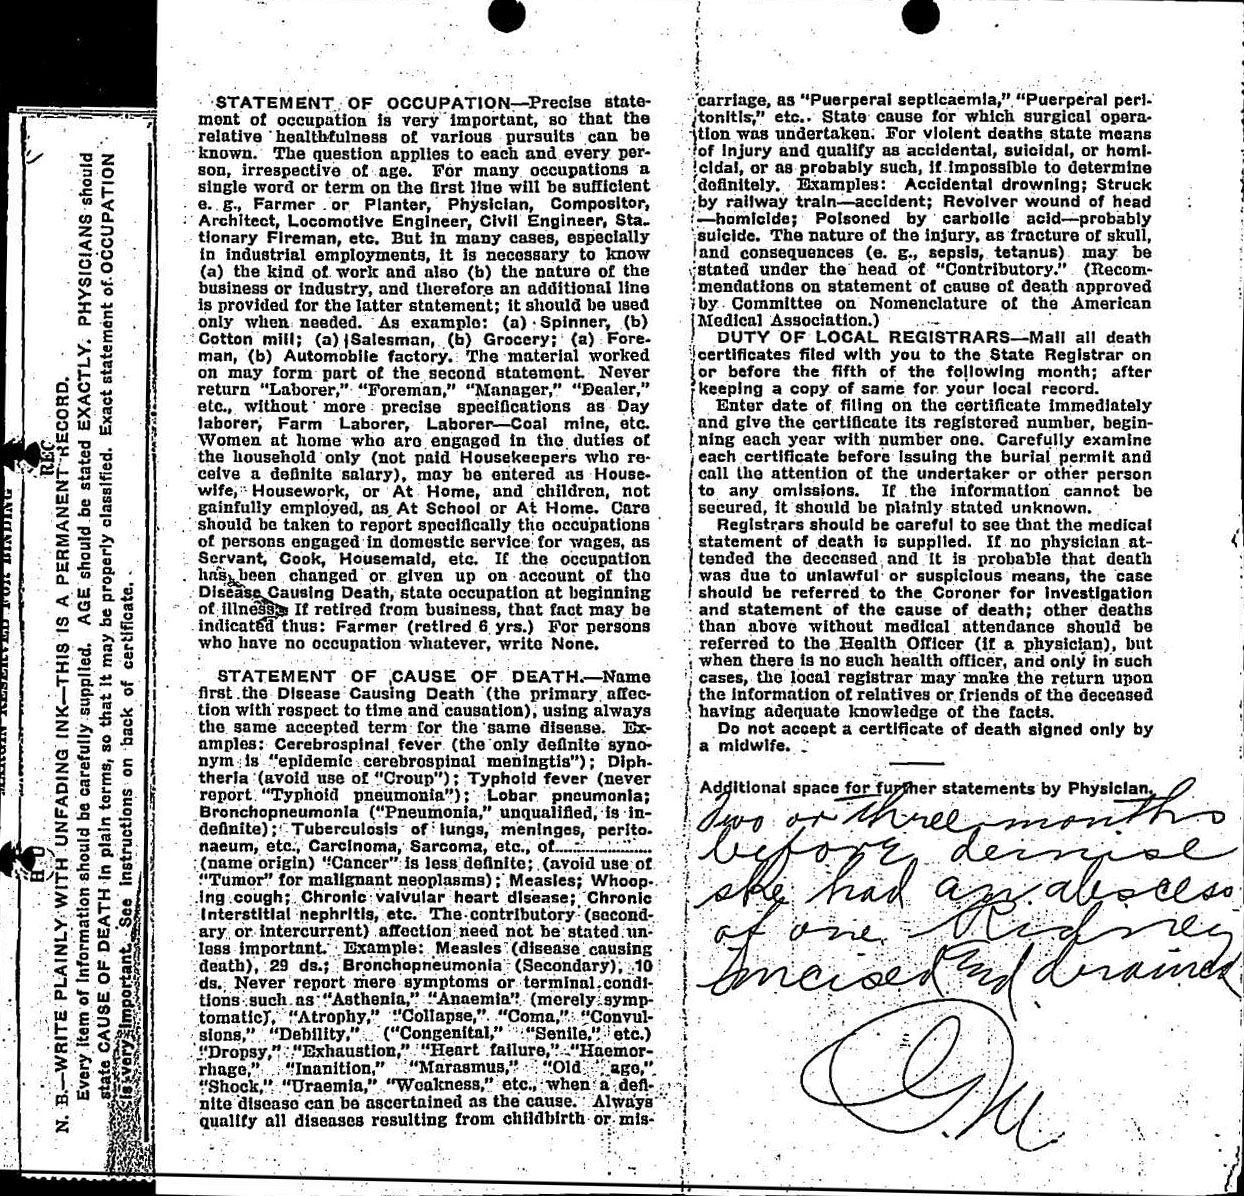 N. B.—WRITE PLAINLY WITH UNFADING INK—THIS IS A PERMANENT RECORD.
Every item of information should be carefully supplied. AGE should be stated EXACTLY. PHYSICIANS should
state CAUSE OF DEATH in plain terms, so that it may be properly classified. Exact statement of OCCUPATION
is very important. See instructions on back of certificate.
STATEMENT OF OCCUPATION—Precise state-
ment of occupation is very important, so that the
relative healthfulness of various pursuits can be
known. The question applies to each and every per-
son, irrespective of age. For many occupations a
single word or term on the first line will be sufficient
e. g., Farmer or Planter, Physician, Compositor,
Architect, Locomotive Engineer, Civil Engineer, Sta-
tionary Fireman, etc. But in many cases, especially
in industrial employments, it is necessary to know
(a) the kind of work and also (b) the nature of the
business or industry, and therefore an additional line
is provided for the latter statement; it should be used
only when needed. As example: (a) Spinner, (b)
Cotton mill; (a) Salesman, (b) Grocery; (a) Fore-
man, (b) Automobile factory. The material worked
on may form part of the second statement. Never
return "Laborer," "Foreman," "Manager," "Dealer,"
etc., without more precise specifications as Day
laborer, Farm Laborer, Laborer—Coal mine, etc.
Women at home who are engaged in the duties of
the household only (not paid Housekeepers who re-
ceive a definite salary), may be entered as House-
wife, Housework, or At Home, and children, not
gainfully employed, as At School or At Home. Care
should be taken to report specifically the occupations
of persons engaged in domestic service for wages, as
Servant, Cook, Housemaid, etc. If the occupation
has been changed or given up on account of the
Disease Causing Death, state occupation at beginning
of illness. If retired from business, that fact may be
indicated thus: Farmer (retired 6 yrs.) For persons
who have no occupation whatever, write None.
STATEMENT OF CAUSE OF DEATH.—Name
first the Disease Causing Death (the primary affec-
tion with respect to time and causation), using always
the same accepted term for the same disease. Ex-
amples: Cerebrospinal fever (the only definite syno-
nym is "epidemic cerebrospinal meningtis"); Diph-
theria (avoid use of "Croup"); Typhoid fever (never
report "Typhoid pneumonia"); Lobar pneumonia;
Bronchopneumonia ("Pneumonia," unqualified, is in-
definite); Tuberculosis of lungs, meninges, perito-
naeum, etc., Carcinoma, Sarcoma, etc., of..................
(name origin) "Cancer" is less definite; (avoid use of
"Tumor" for malignant neoplasms); Measles; Whoop-
ing cough; Chronic valvular heart disease; Chronic
interstitial nephritis, etc. The contributory (second-
ary or intercurrent) affection need not be stated un-
less important. Example: Measles (disease causing
death), 29 ds.; Bronchopneumonia (Secondary), 10
ds. Never report mere symptoms or terminal condi-
tions such as "Asthenia," "Anaemia" (merely symp-
tomatic), "Atrophy," "Collapse," "Coma," "Convul-
sions," "Debility," ("Congenital," "Senile," etc.)
"Dropsy," "Exhaustion," "Heart failure," "Haemor-
rhage," "Inanition," "Marasmus," "Old age,"
"Shock," "Uraemia," "Weakness," etc., when a defi-
nite disease can be ascertained as the cause. Always
qualify all diseases resulting from childbirth or mis-
carriage, as "Puerperal septicaemia," "Puerperal peri-
tonitis," etc. State cause for which surgical opera-
tion was undertaken. For violent deaths state means
of injury and qualify as accidental, suicidal, or homi-
cidal, or as probably such, if impossible to determine
definitely. Examples: Accidental drowning; Struck
by railway train—accident; Revolver wound of head
—homicide; Poisoned by carbolic acid—probably
suicide. The nature of the injury, as fracture of skull,
and consequences (e. g., sepsis, tetanus) may be
stated under the head of "Contributory." (Recom-
mendations on statement of cause of death approved
by Committee on Nomenclature of the American
Medical Association.)
DUTY OF LOCAL REGISTRARS—Mail all death
certificates filed with you to the State Registrar on
or before the fifth of the following month; after
keeping a copy of same for your local record.
Enter date of filing on the certificate immediately
and give the certificate its registered number, begin-
ning each year with number one. Carefully examine
each certificate before issuing the burial permit and
call the attention of the undertaker or other person
to any omissions. If the information cannot be
secured, it should be plainly stated unknown.
Registrars should be careful to see that the medical
statement of death is supplied. If no physician at-
tended the deceased and it is probable that death
was due to unlawful or suspicious means, the case
should be referred to the Coroner for investigation
and statement of the cause of death; other deaths
than above without medical attendance should be
referred to the Health Officer (if a physician), but
when there is no such health officer, and only in such
cases, the local registrar may make the return upon
the information of relatives or friends of the deceased
having adequate knowledge of the facts.
Do not accept a certificate of death signed only by
a midwife.
Additional space for further statements by Physician.
Two or three months
before demise
she had an abscess
of one Kidney
Incised and drained